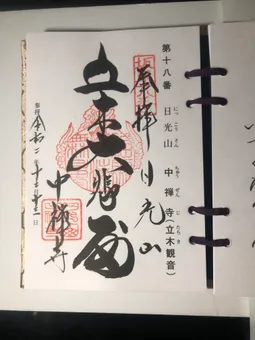 第十八番 日光山 中禅寺(立木観音)
にっこうさん ちゅうぜんじ たちき
奉拝 日光山
立木大悲
中禅寺
参拝 令和二年十 月十 日